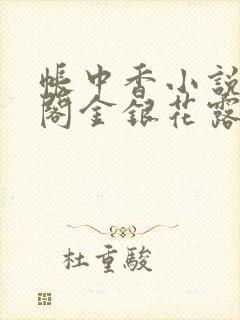 帳中香小說
閣金銀花露
杜重駿